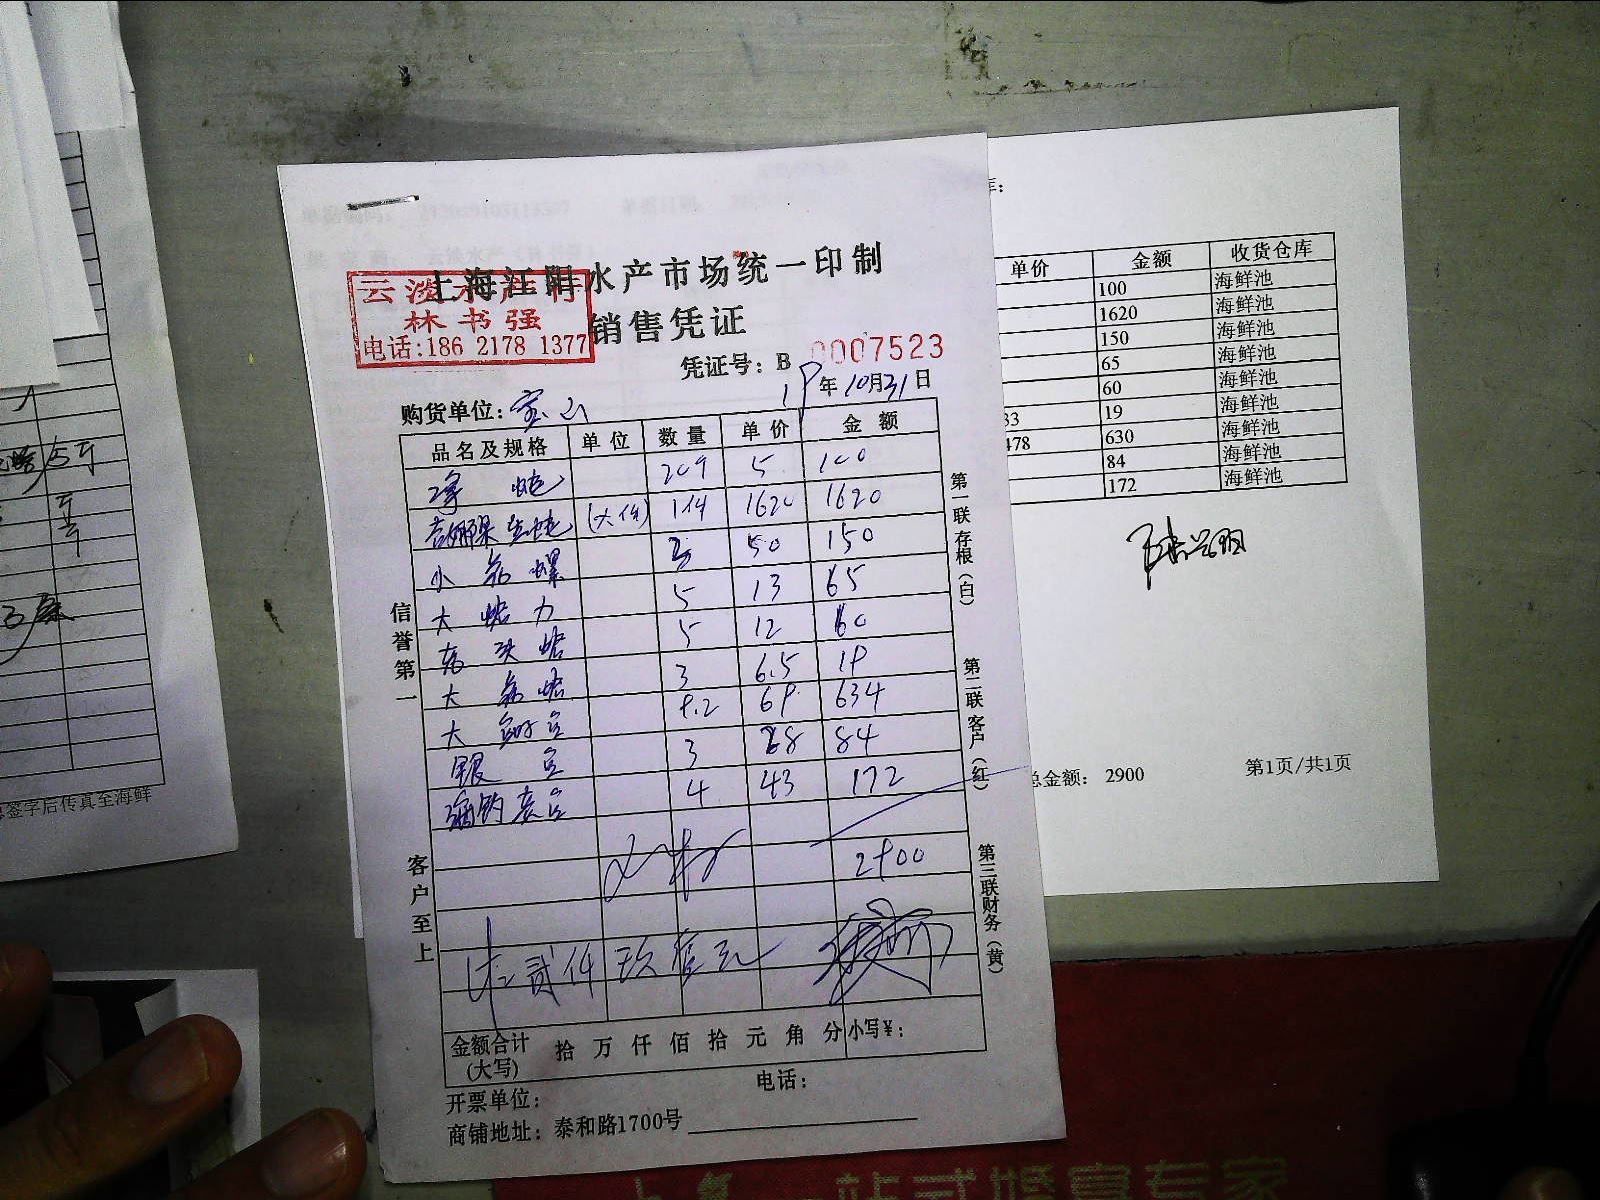 上海江阳水产市场统一印制
云淡水产行
林书强
电话:186 2178 1377
销售凭证
凭证号: B 0007523
购货单位: 宝山 19年10月31日
品名及规格 单位 数量 单价 金额
5 100
(大件) 1件 1620 1620
小 螺 3 50 150
大 蛤 5 13 65
5 12 60
大 蛤 3 6.5 19
大 9.2 69 634
银 3 28 84
4 43 172
2900
贰仟玖佰元
金额合计(大写) 拾 万 仟 佰 拾 元 角 分 小写¥:
开票单位: 电话:
商铺地址: 泰和路1700号
信誉第一
客户至上
第一联存根(白)
第二联客户(红)
第三联财务(黄)
单价 金额 收货仓库
100 海鲜池
1620 海鲜池
150 海鲜池
65 海鲜池
60 海鲜池
33 19 海鲜池
478 630 海鲜池
84 海鲜池
172 海鲜池
总金额: 2900 第1页/共1页
签字后传真至海鲜
站式婚宴专家